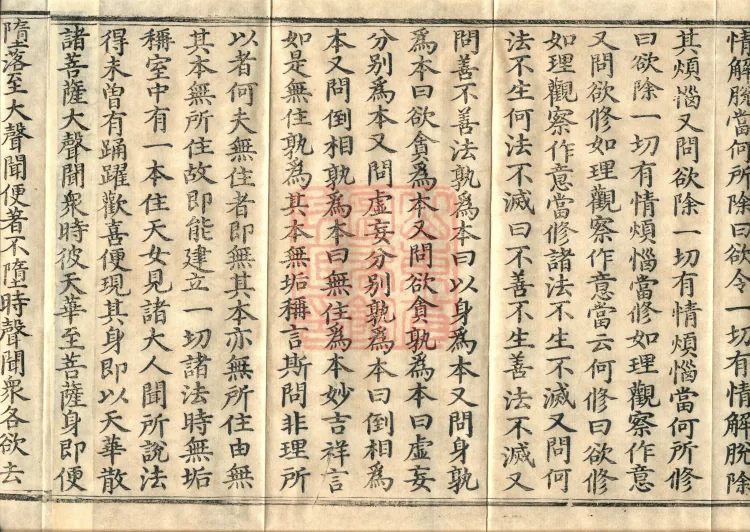 情解脫當何所除曰欲令一切有情解脫除
其煩惱又問欲除一切有情煩惱當何所修
曰欲除一切有情煩惱當修如理觀察作意
又問欲修如理觀察作意當云何修曰欲修
如理觀察作意當修諸法不生不滅又問何
法不生何法不滅曰不善不生善法不滅又
問善不善法孰為本曰以身為本又問身孰
為本曰欲貪為本又問欲貪孰為本曰虛妄
分別為本又問虛妄分別孰為本曰倒相為
本又問倒相孰為本曰無住為本妙吉祥言
如是無住孰為其本無垢稱言斯問非理所
以者何夫無住者即無其本亦無所住由無
其本無所住故即能建立一切諸法時無垢
稱室中有一本住天女見諸大人聞所說法
得未曾有踊躍歡喜便現其身即以天華散
諸菩薩大聲聞眾時彼天華至菩薩身即便
墮落至大聲聞便著不墮時聲聞眾各欲去